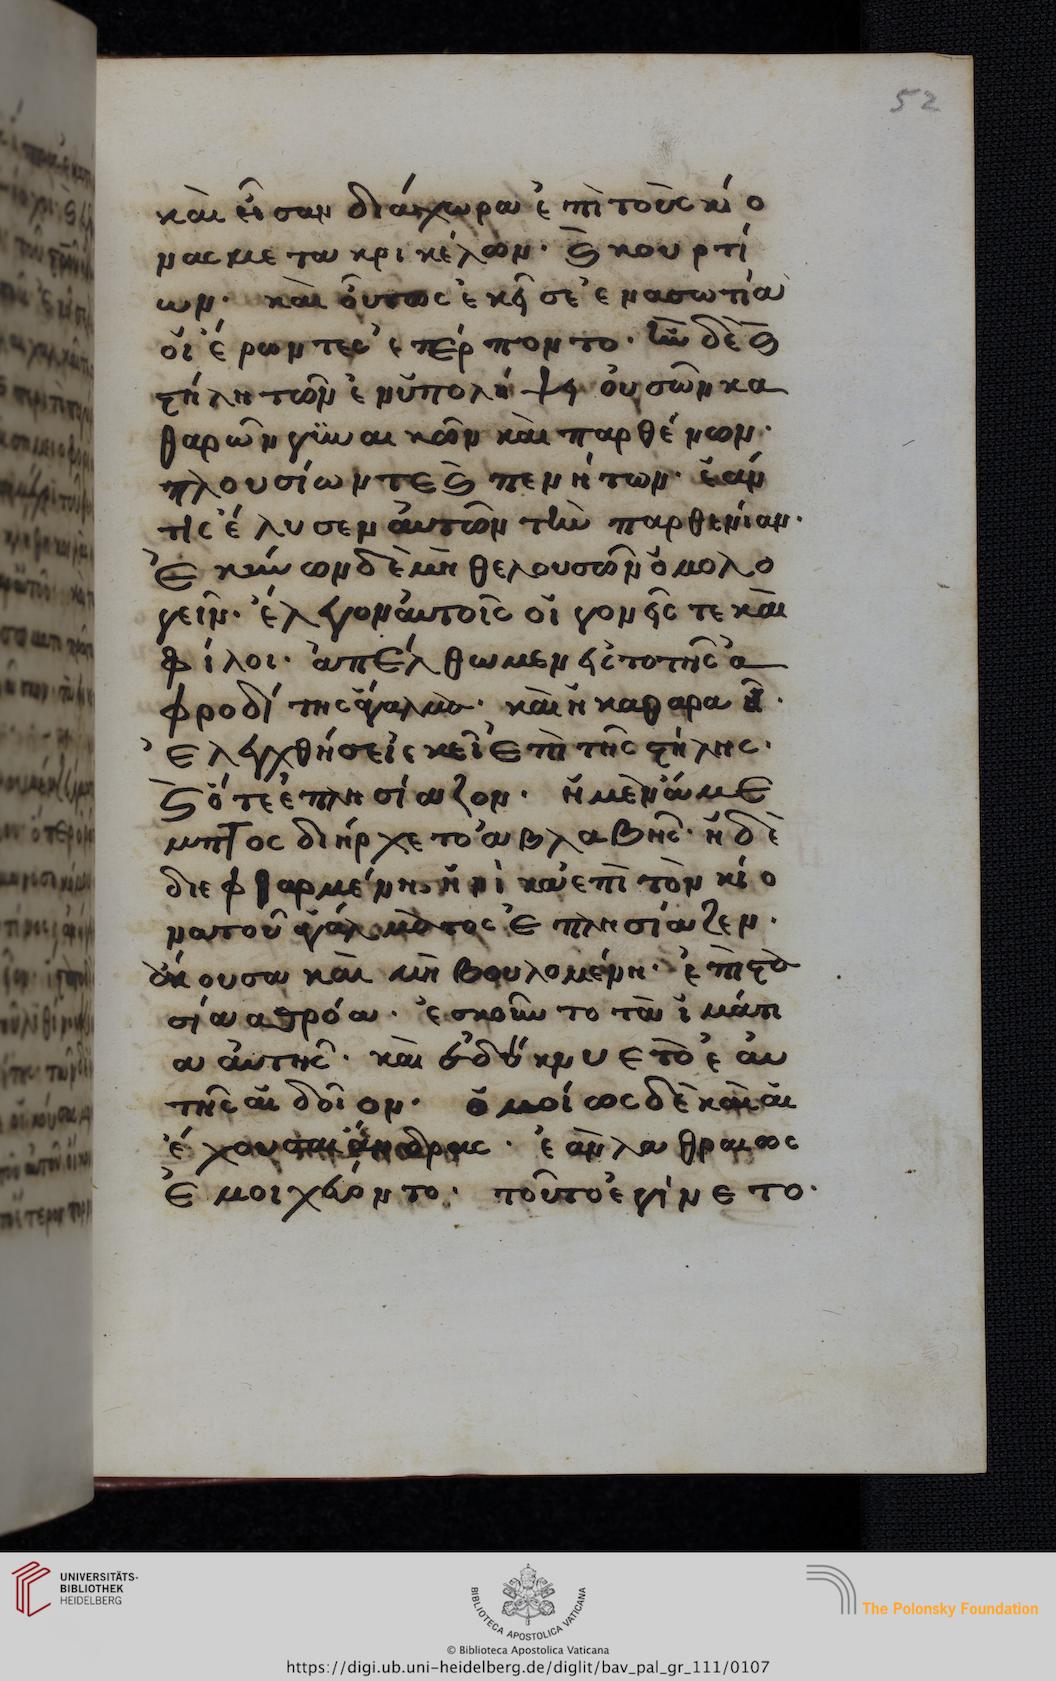 52
καὶ εἶσαν διάχωρα ἐπὶ τοὺς κίο
νας μετα κρικέλων. ϗ κουρτί
ων. καὶ οὕτως ἐκεῖσε
οἱ ἐρωντες ἐτέρποντο. ἦν δὲ ϗ
στήλη τῶν ἐν πόλει οὐσῶν κα
θαρῶν γυναικῶν καὶ παρθένων.
πλουσίων τε ϗ πενήτων. ἐάν
τις ἔλυσεν αὐτῶν τὴν παρθενίαν.
ἐκείνων δὲ μὴ θελουσῶν ὁμολο
γεῖν. ἔλεγον αὐτοῖς οἱ γονεῖς τε καὶ
φίλοι. ἀπέλθωμεν εἰς το τῆς ἀ
φροδίτης ἄγαλμα. καὶ ἡ καθαρα εἶ.
ἐλεγχθήσει ἐκεῖ ἐπὶ τῆς στήλης.
ϗ ὅτε ἐπλησίαζον. ἡ μὲν ἄμε
μπτος διήρχετο ἀβλαβής. ἡ δὲ
διεφθαρμένη, ἡνίκα ἐπὶ τὸν κίο
να τοῦ ἀγάλματος ἐπλησίαζεν.
ἄκουσα καὶ μὴ βουλομένη.
ἐσκοῦντο τὰ ἱμάτι
α αὐτῆς. καὶ ἐδείκνυετο
τῆς αἰδοῖον. ὁμοίως δὲ καὶ αἱ
ἔχουσαι ἄνδρας. ἐὰν λαθραίως
ἐμοιχεύοντο. τοῦτο ἐγίνετο.
UNIVERSITÄTS-
BIBLIOTHEK
HEIDELBERG
BIBLIOTECA APOSTOLICA VATICANA
© Biblioteca Apostolica Vaticana
The Polonsky Foundation
https://digi.ub.uni-heidelberg.de/diglit/bav_pal_gr_111/0107